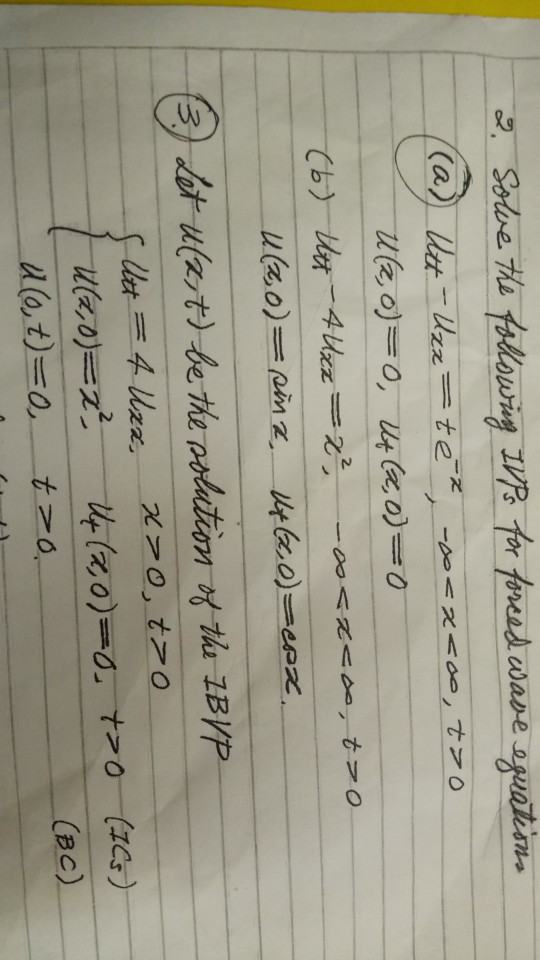 2. Solve the following IVPs for forced wave equations
(a) Utt - Uxx = te^-x, -∞ < x < ∞, t > 0
U(x,0) = 0, Ut(x,0) = 0
(b) Utt - 4Uxx = x², -∞ < x < ∞, t > 0
U(x,0) = sin x, Ut(x,0) = cos x.
3. Let U(x,t) be the solution of the IBVP
{ Utt = 4Uxx, x > 0, t > 0
U(x,0) = x², Ut(x,0) = 0, t > 0 (ICs)
U(0,t) = 0, t > 0. (BC)